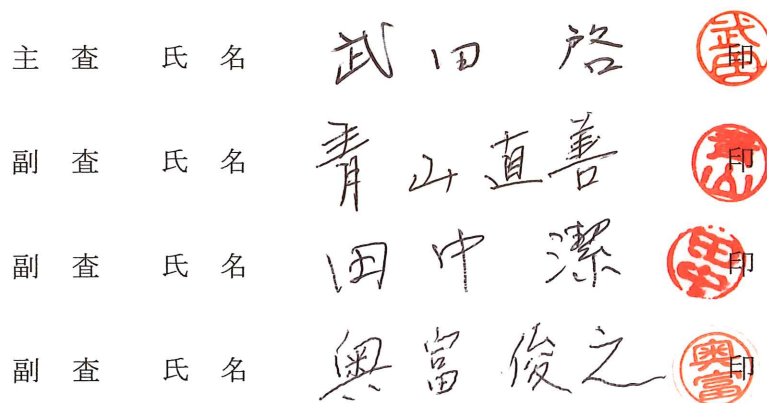 主 査 氏 名 武田 啓 印
副 査 氏 名 青山直善 印
副 査 氏 名 田中 潔 印
副 査 氏 名 奥富俊之 印